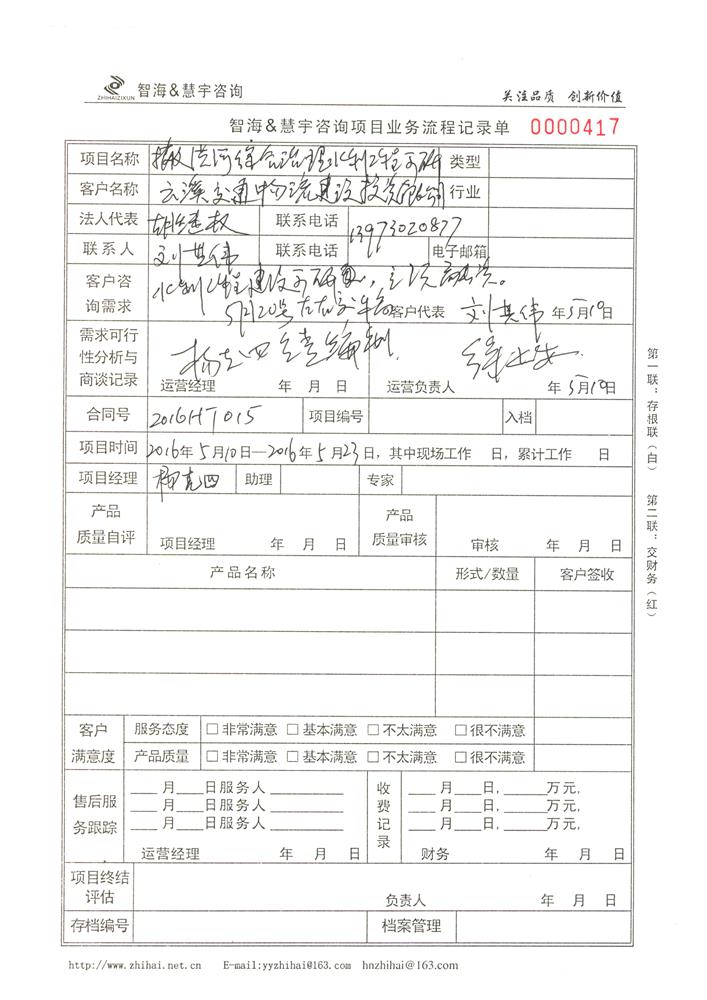 ZHIHAIZIXUN
智海&慧宇咨询
关注品质 创新价值
智海&慧宇咨询项目业务流程记录单 0000417
项目名称 河综合治理水利工程可研 类型
客户名称 云溪交通物流建设投资有限公司 行业
法人代表 胡 权 联系电话 13973020877
联系人 刘其伟 联系电话 电子邮箱
客户咨询需求 水利工程建设可研 5月20号左右交 客户代表 刘其伟 年5月10日
需求可行性分析与商谈记录 编制
运营经理 年 月 日 运营负责人 年5月10日
合同号 2016HT015 项目编号 入档
项目时间 2016年5月10日—2016年5月23日,其中现场工作 日,累计工作 日
项目经理 克四 助理 专家
产品质量自评 项目经理 年 月 日 产品质量审核 审核 年 月 日
产品名称 形式/数量 客户签收
客户满意度 服务态度 □ 非常满意 □ 基本满意 □ 不太满意 □ 很不满意
产品质量 □ 非常满意 □ 基本满意 □ 不太满意 □ 很不满意
售后服务跟踪 ___月___日服务人________ 收费记录 ___月___日,_____万元,
___月___日服务人________ ___月___日,_____万元,
___月___日服务人________ ___月___日,_____万元,
运营经理 年 月 日 财务 年 月 日
项目终结评估 负责人 年 月 日
存档编号 档案管理
http://www.zhihai.net.cn E-mail:yyzhihai@163.com hnzhihai@163.com
第一联:存根联(白) 第二联:交财务(红)